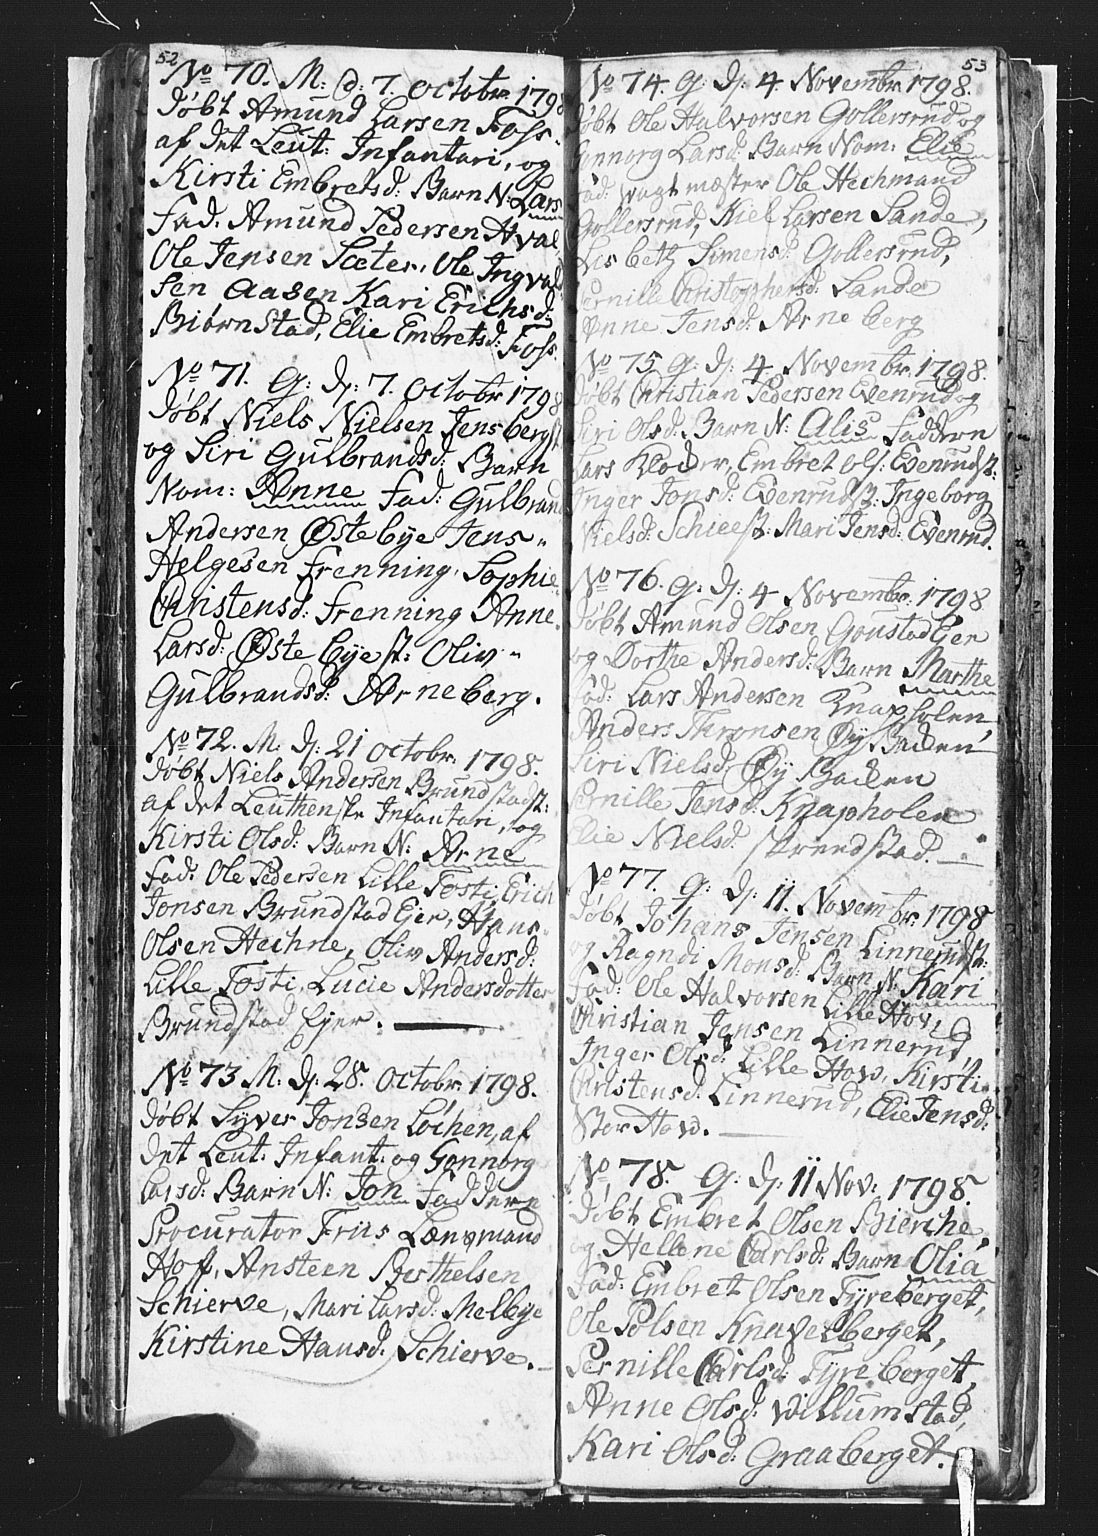 52
No 70. M: d: 7. octobr 1798
Døbt Amund Larsen Foss
af det Leut: Infantari, og
Kirsti Embretsd: Barn N: Lars
Fad. Amund Pedersen Hval
Ole Jensen Sæter, Ole Ingvald
sen Aasen Kari Erichsd:
Biørnstad, Elie Embretsd: Foss.
No 71. G: d: 7. octobr 1798
Døbt Niels Nielsen Jensberg st
og Siri Gulbrandsd: Barn
Nom: Anne Fad: Gulbrand
Andersen Østebye Jens
Helgesen Frenning, Sophie
Christensd: Frenning Anne
Larsd: Østebye st: Oliv
Gulbrandsd: Arneberg.
No 72. M: d: 21 octobr. 1798.
Døbt Niels Andersen Brundstadst:
af det Leuthenske Infantari, og
Kirsti Olsd: Barn N: Arne
Fad: Ole Pedersen Lille Tosti, Erich
Jonsen Brundstad Ejer, Hans
Olsen Hechne, Oliv Andersd:
Lille Tosti, Lucie Andersdotter
Brundstad Ejer.
No 73 M: d: 28. octobr: 1798.
Døbt Syver Jonsen Løchen, af
det Leut: Infant: og Gonnorg
Larsd: Barn N: Jon Faddern
Procurator Friis Lænsmand
Hoff, Ansteen Berthelsen
Schierve, Mari Larsd: Melbye
Kirstine Hansd: Schierve.
53
No 74. G: d: 4. Novembr 1798.
Døbt Ole Halvorsen Gollersrud og
Gonnorg Larsd: Barn Nom: Elie
Fad: Vagtmæster Ole Hechmand
Gollersrud, Niel Larsen Sande,
Lisbeth Simensd: Gollersrud,
Pernille Christophersd: Sande
Anne Jensd: Arneberg
No 75 G: d: 4 Novembr. 1798.
Døbt Christian Pedersen Evenrud og
Siri Olsd: Barn N: Alis Faddern
Lars Klocker, Embret Ols: Evenrudst:
Inger Jonsd: Evenrudst: Ingeborg
Nielsd: Schieest: Mari Jensd: Evenrud.
No 76. G: d: 4 Novembr: 1798
Døbt Amund Olsen Goustad Ejer
og Dorthe Andersd: Barn Marthe
Fad: Lars Andersen Knapholen
Anders Thronsen Øy Backen
Siri Nielsd: Øy Backen
Pernille Jensd: Knapholen
Elie Nielsd: Strandstad.
No 77. G: d: 11. Novembr. 1798
Døbt Johans Jensen Linnerudst:
og Ragndi Monsd: Barn N: Kari
Fad: Ole Halvorsen Lille Hov,
Christian Jensen Linnerud,
Inger Olsd: Lille Hov, Kirsti
Christensd: Linnerud, Elie Jensd:
Stor Hov.
No 78. G: d: 11 Nov: 1798.
Døbt Embret Olsen Bierche,
og Hellene Carlsd: Barn Olia
Fad: Embret Olsen Tyreberget,
Ole Polsen Knavelberget,
Pernille Carlsd: Tyreberget,
Anne Olsd: Willumstad,
Kari Olsd: Graaberget.